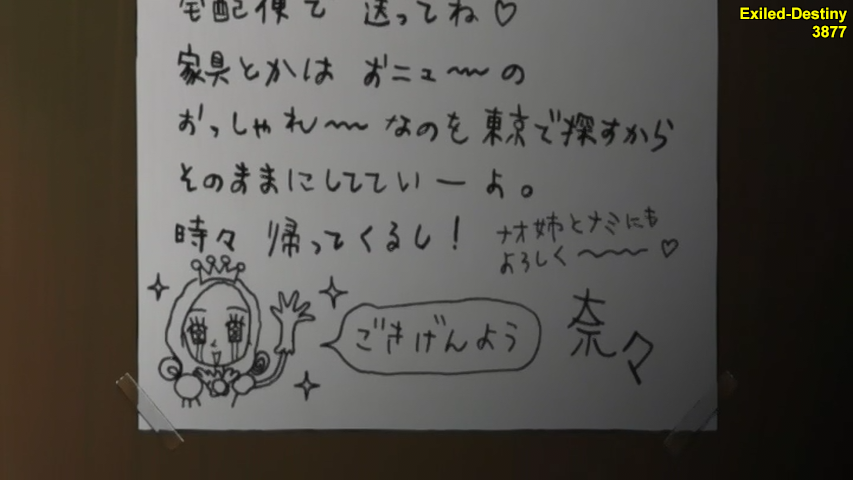 Exiled-Destiny
3877
宅配便で 送ってね♡
家具とかは おニュ〜〜の
おっしゃれ〜〜なのを東京で探すから
そのままにしてていーよ。
時々 帰ってくるし！
ナオ姉とナミにも
よろしく〜〜〜♡
ごきげんよう
奈々